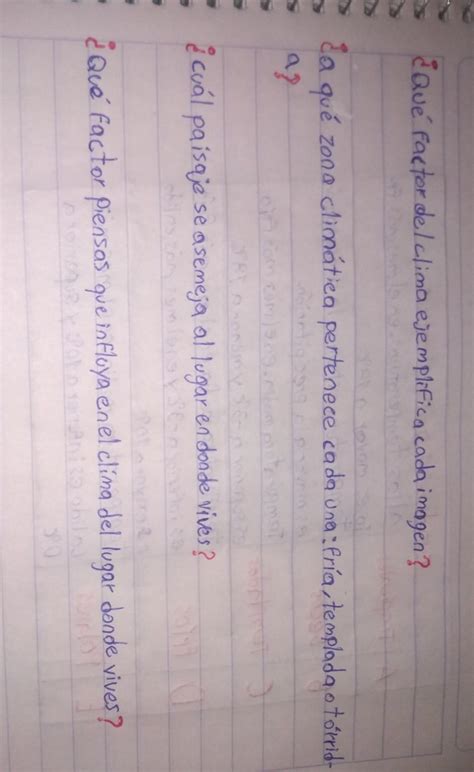 ¿Qué factor del clima ejemplifica cada imagen?
¿a qué zona climática pertenece cada una: fría, templada o tórrid-
a?
¿cuál paisaje se asemeja al lugar en donde vives?
¿Qué factor piensas que influya en el clima del lugar donde vives?